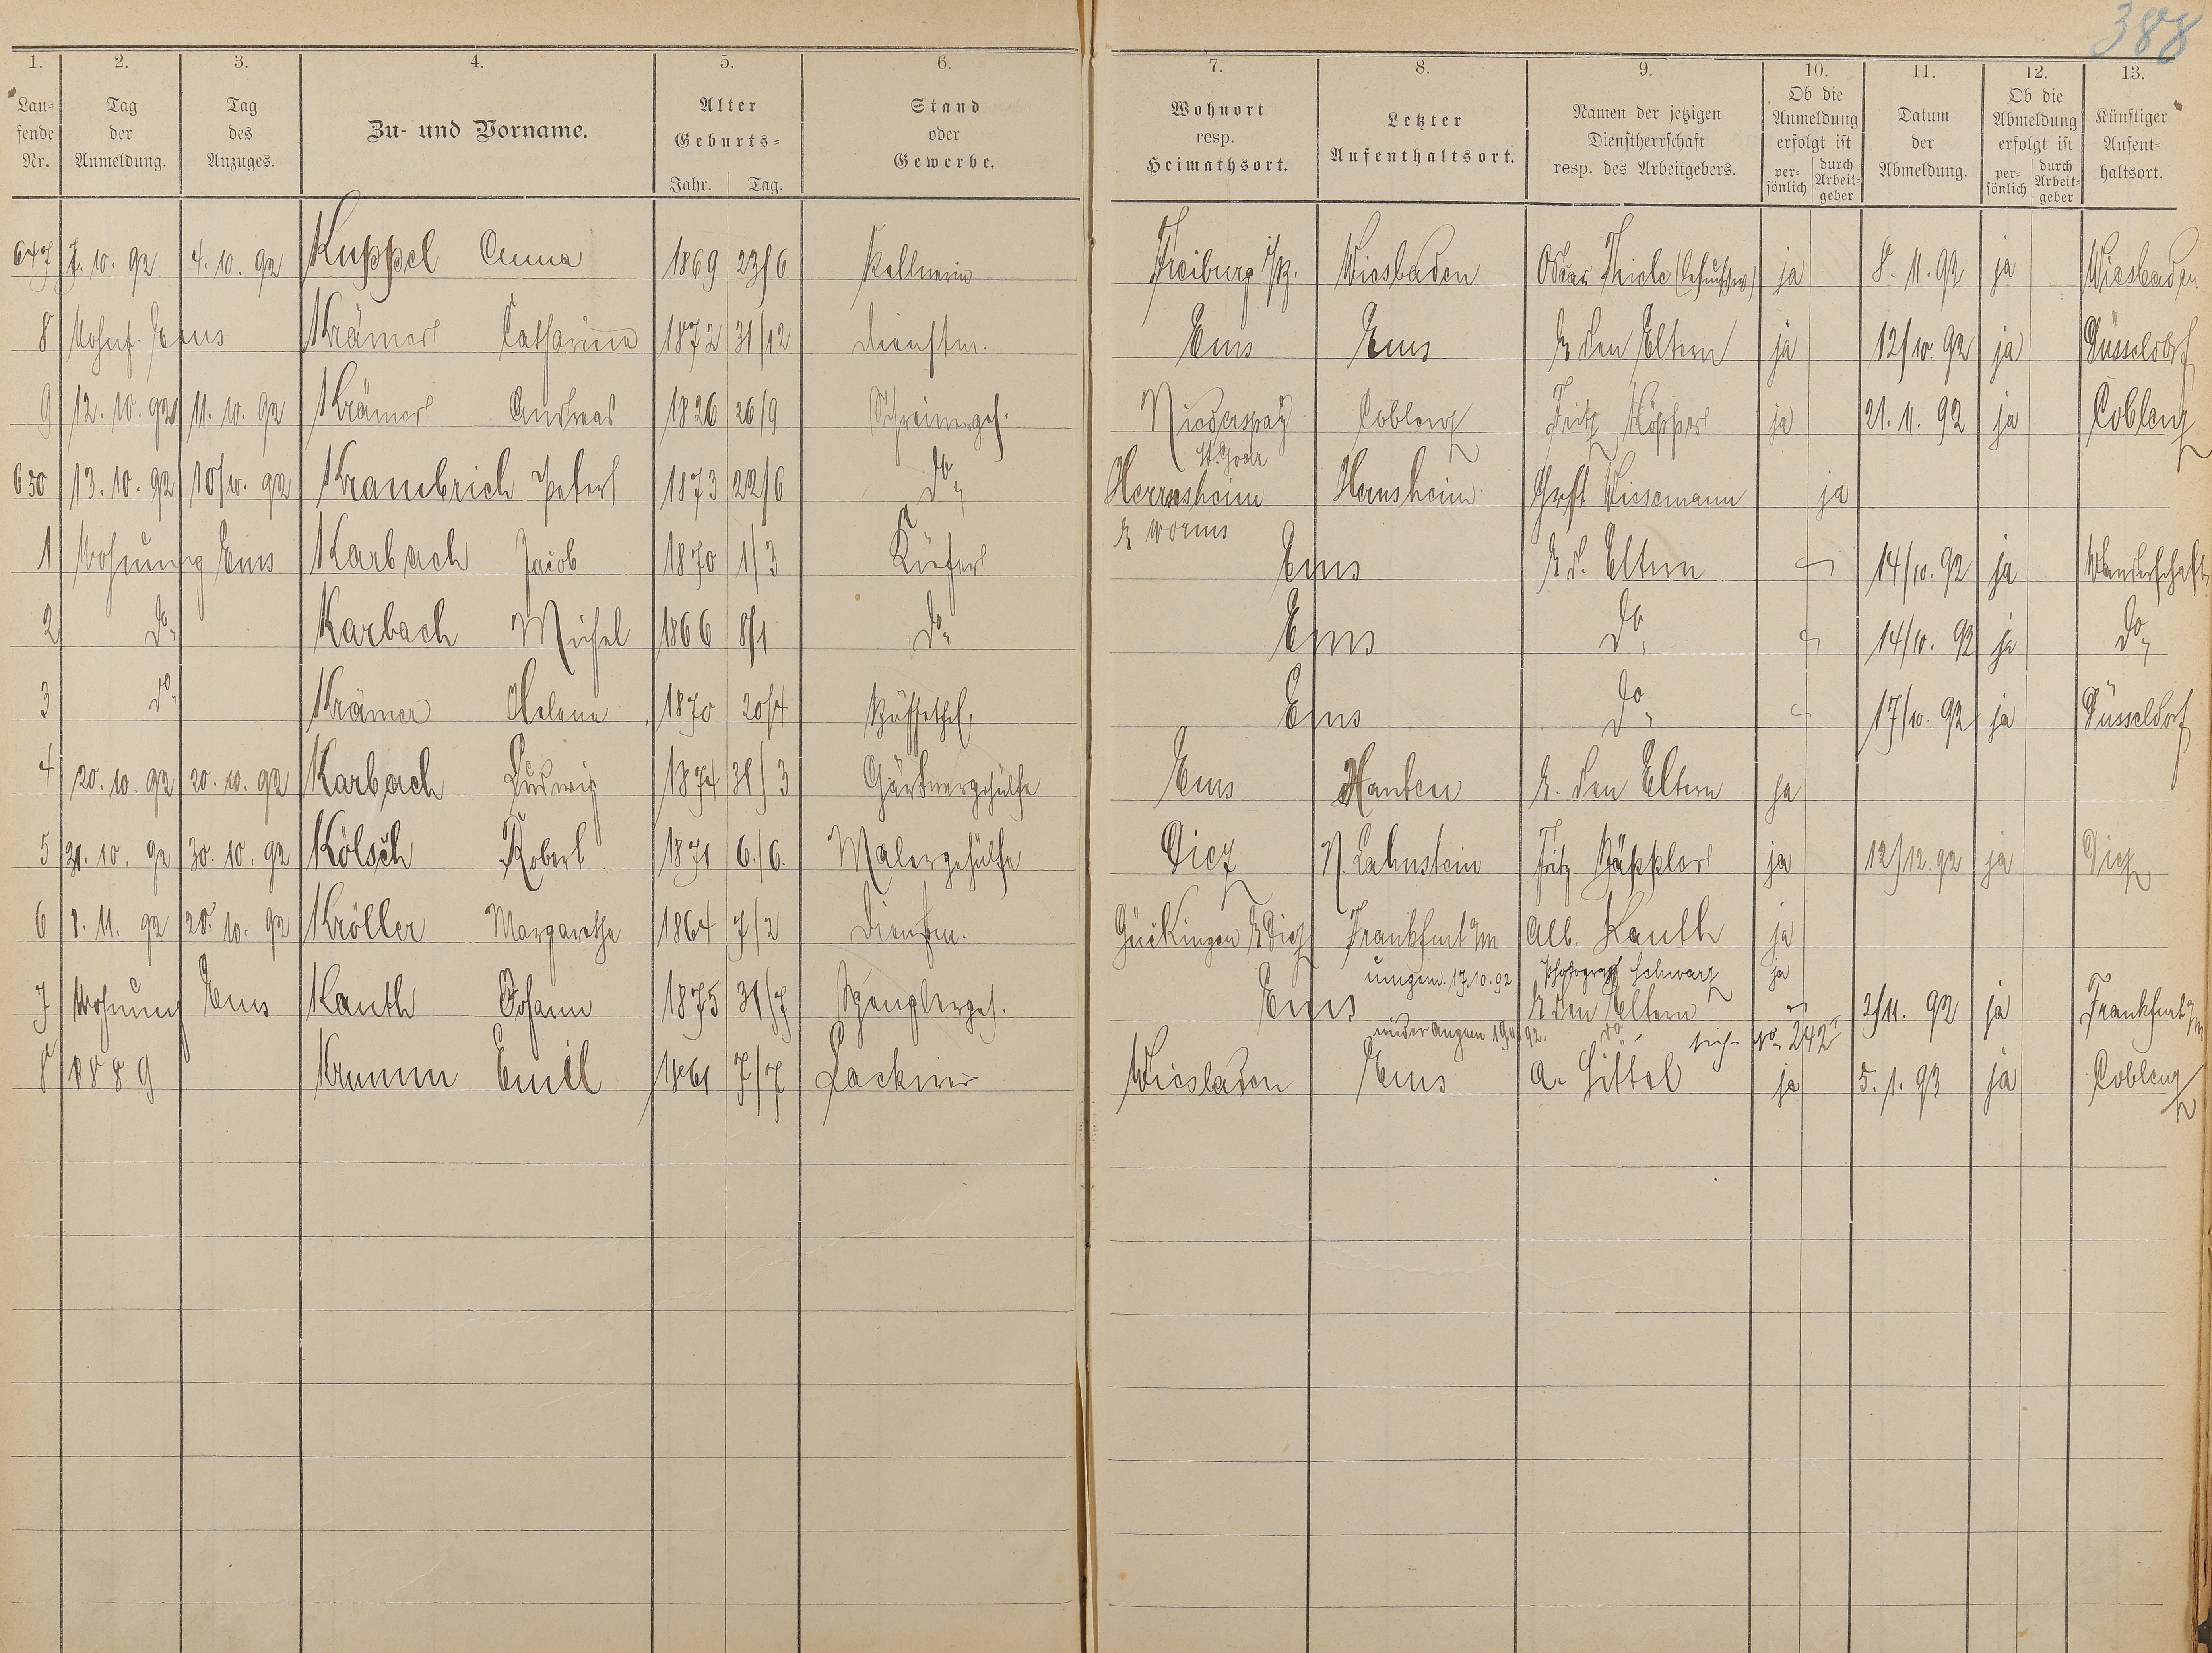 388
1. 2. 3. 4. 5. 6. 7. 8. 9. 10. 11. 12. 13.
Lau-
fende
Nr.
Tag
der
Anmeldung.
Tag
des
Anzuges.
Zu- und Vorname.
Alter
Geburts-
Jahr. Tag.
Stand
oder
Gewerbe.
Wohnort
resp.
Heimathsort.
Letzter
Aufenthaltsort.
Namen der jetzigen
Dienstherrschaft
resp. des Arbeitgebers.
Ob die
Anmeldung
erfolgt ist
per-
sönlich
durch
Arbeit-
geber
Datum
der
Abmeldung.
Ob die
Abmeldung
erfolgt ist
per-
sönlich
durch
Arbeit-
geber
Künftiger
Aufent-
haltsort.
647 7. 10. 92 4. 10. 92 Kuppel Anna 1869 23/6 Kellnerin Freiburg i/B. Wiesbaden Oscar Thiele ja 8. 11. 92 ja Wiesbaden
8 Wohnt. Ems Krämer Catharina 1872 31/12 Dienstm. Ems Ems b den Eltern ja 12/10. 92 ja Düsseldorf
9 12. 10. 92 11. 10. 92 Krämer Andreas 1826 26/9 Schreinergeh. Niederspay Coblenz Fritz Köpper ja 21. 11. 92 ja Coblenz
St. Goar
650 13. 10. 92 10/10. 92 Krambrich Peter 1873 22/6 do Herrnsheim Hernsheim Wiesemann ja
b Worms
1 Wohnung Ems Karbach Jacob 1870 1/3 Küfer Ems b. d. Eltern 14/10. 92 ja Wanderschaft
2 do Karbach Michel 1866 8/1 do Ems do 14/10. 92 ja do
3 do Krämer Helene 1870 20/4 Ems do 17/10. 92 ja Düsseldorf
4 20. 10. 92 20. 10. 92 Karbach Ludwig 1874 31/3 Gärtnergehülfe Ems Xanten b. den Eltern ja
5 31. 10. 92 30. 10. 92 Kölsch Robert 1871 6./6. Malergehülfe Diez N. Lahnstein Fritz Käppler ja 12/12. 92 ja Diez
6 1. 11. 92 28. 10. 92 Kröller Margarethe 1864 7/2 Dienstm. Gückingen b Diez Frankfurt a/m Alb. Kauth ja
umgem. 17. 10. 92 Photograph Schwarz ja
7 Wohnung Ems Kauth Johann 1875 31/7 Spenglergeh. Ems b den Eltern 2/11. 92 ja Frankfurt a/m
wieder angem 19. 11. 92. do sich No 242
8 1889 Krumm Emil 1861 7/7 Lackirer Wiesbaden Ems A. Littol ja 5. 1. 93 ja Coblenz